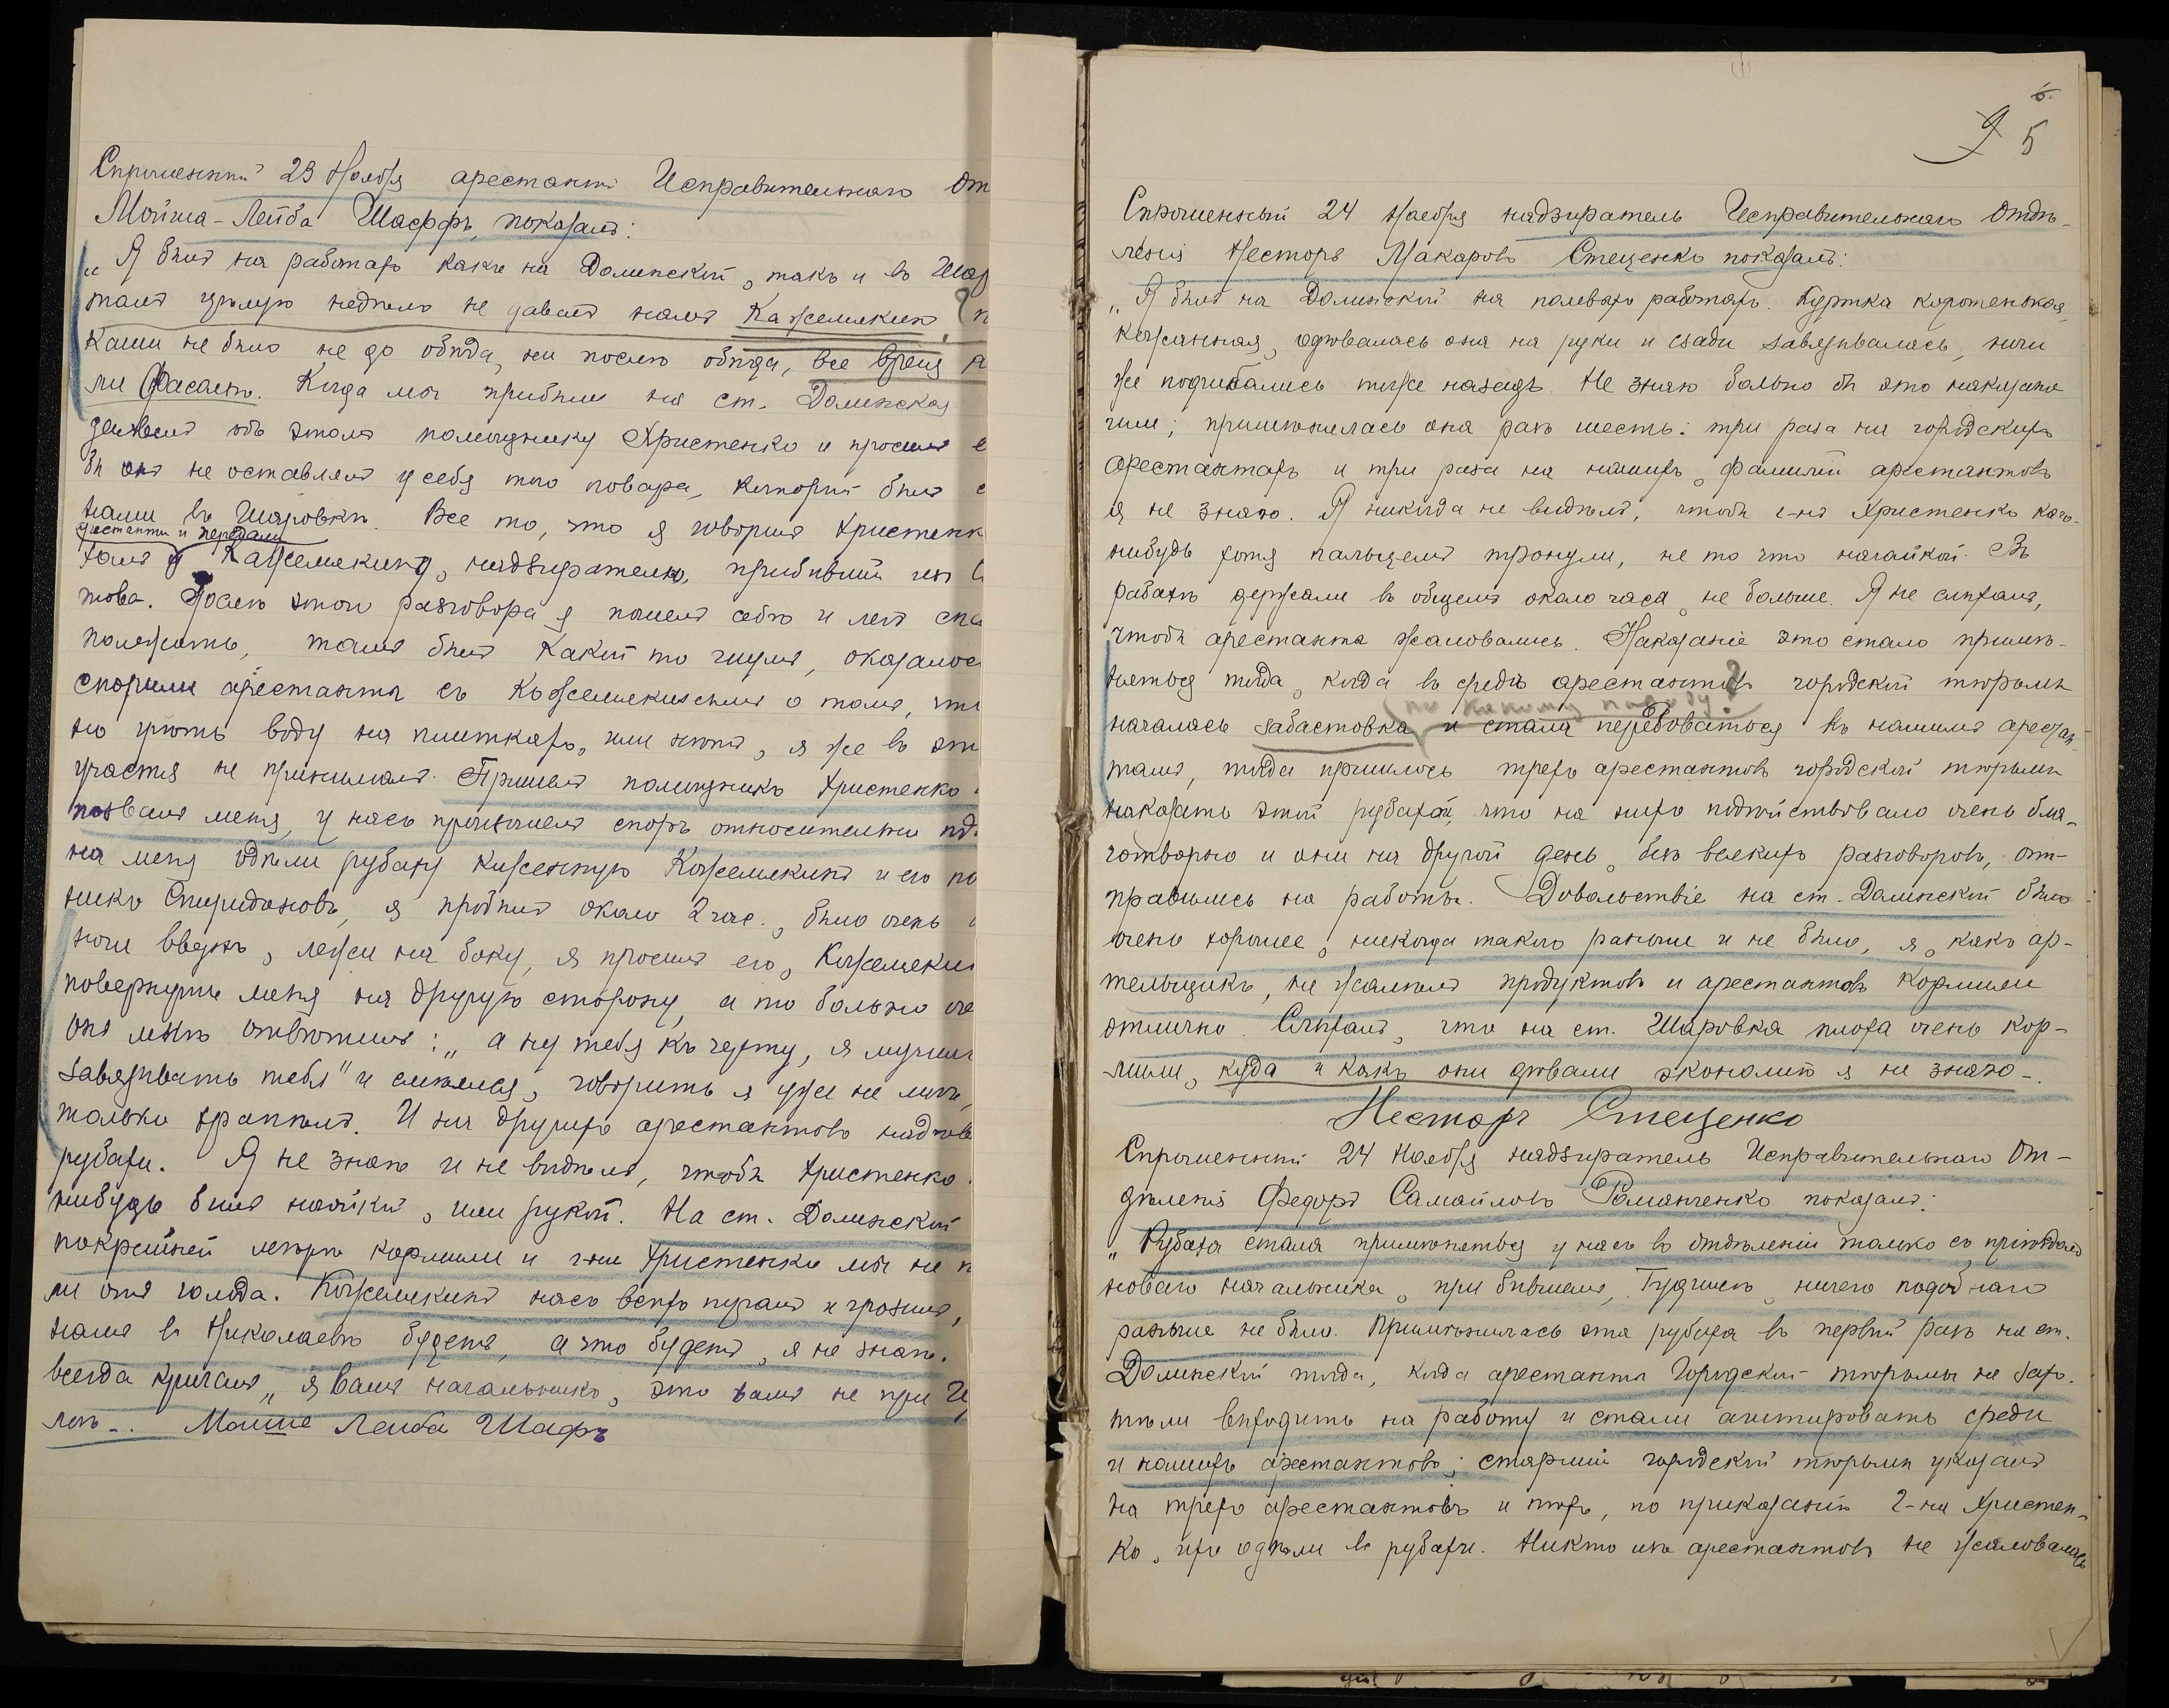 Спрошенный 23 Ноября арестантъ Исправительнаго От
Мойша-Лейба Шаффъ, показалъ:
„Я былъ на работахъ какъ на Долинской, такъ и въ Шар
тамъ цѣлую недѣлю не давалъ намъ Кожемякинъ,
каши не было не до обѣда, ни послѣ обѣда, все время
ли фасоль. Когда мы прибыли на ст. Долинская
объ этомъ помощнику Христенко и просилъ е
бы онъ не оставлялъ у себя того повара, который былъ с
нами въ Шаровкѣ. Все то, что я говорилъ Христенк
арестанты и передали
Кожемякину, надзиратель, прибывшій изъ
това. Послѣ этого разговора я пошелъ себѣ и легъ спа
полежать, тамъ былъ какой то шумъ, оказалос
спорили арестанты съ Кожемякинымъ о томъ, что
но грѣть воду на плиткахъ, или нѣтъ, я же въ эт
участія не принималъ. Пришелъ помощникъ Христенко
позвалъ меня, у насъ произошелъ споръ относительно
на меня одѣли рубаху кожанную Кожемякинъ и его по
никъ Спиридоновъ, я пробылъ около 2 час., было очень
ноги вверхъ, лежа на боку, я просилъ его, Кожемяки
повернуть меня на другую сторону, а то больно оче
онъ мнѣ отвѣтилъ: „а ну тебя къ черту, я мучил
завязывать тебя" и смѣялся, говорить я уже не могъ,
только храпѣлъ. И на другихъ арестантовъ надѣва
рубахи. Я не знаю и не видѣлъ, чтобы Христенко
нибудь билъ нагайкой, или рукой. На ст. Долинской
покрайней мѣрѣ кормили и г-на Христенко мы не
ли отъ голода. Кожемякинъ насъ всѣхъ пугалъ и грозилъ,
намъ въ Николаевѣ будетъ, а что будетъ, я не знаю.
всегда кричалъ „я вашъ начальникъ, это вамъ не при
Мойше Лейба Шафъ
6.
9 5
Спрошенный 24 Ноября надзиратель Исправительнаго Отдѣ-
ленія Несторъ Макаровъ Стеценко показалъ:
„Я былъ на Долинской на полевыхъ работахъ. Куртка коротенькая,
кожанная, одѣвалась она на руки и сзади завязывалась, ноги
же подгибались тоже назадъ. Не знаю больно бы это наказаніе
или; примѣнялась она разъ шесть: три раза на городскихъ
арестантахъ и три раза на нашихъ, фамилій арестантовъ
я не знаю. Я никогда не видѣлъ, чтобы г-нъ Христенко кого-
нибудь хотя пальцемъ тронули, не то что нагайкой. Въ
рубахѣ держали въ общемъ около часа, не больше. Я не слыхалъ,
чтобы арестанты жаловались. Наказаніе это стало примѣ-
няться тогда, когда въ средѣ арестантовъ городской тюрьмы
по какому поводу?
началась забастовка и стала передаваться къ нашимъ арестан-
тамъ, тогда пришлось трехъ арестантовъ городской тюрьмы
наказать этой рубахой, что на нихъ подѣйствовало очень бла-
готворно и они на другой день, безъ всякихъ разговоровъ, от-
правились на работы. Довольствіе на ст. Долинской было
очень хорошее, никогда такого раньше и не было, я, какъ ар-
тельщикъ, не жалѣлъ продуктовъ и арестантовъ кормили
отлично. Слыхалъ, что на ст. Шаровка плохо очень кор-
мили, куда и какъ они дѣвали экономію я не знаю.
Несторъ Стеценко
Спрошенный 24 Ноября надзиратель Исправительнаго От-
дѣленія Федоръ Самойловъ Романченко показалъ:
„Рубаха стала примѣняться у насъ въ отдѣленіи только съ пріѣздомъ
новаго начальника, при бывшемъ, ничего подобнаго
раньше не было. Примѣнялась эта рубаха въ первый разъ на ст.
Долинской тогда, когда арестанты Городской тюрьмы не захо-
тѣли выходить на работу и стали агитировать среди
и нашихъ арестантовъ; старшій городской тюрьмы указалъ
на трехъ арестантовъ и тѣхъ, по приказанію г-на Христен-
ко, ихъ одѣли въ рубахи. Никто изъ арестантовъ не жаловались